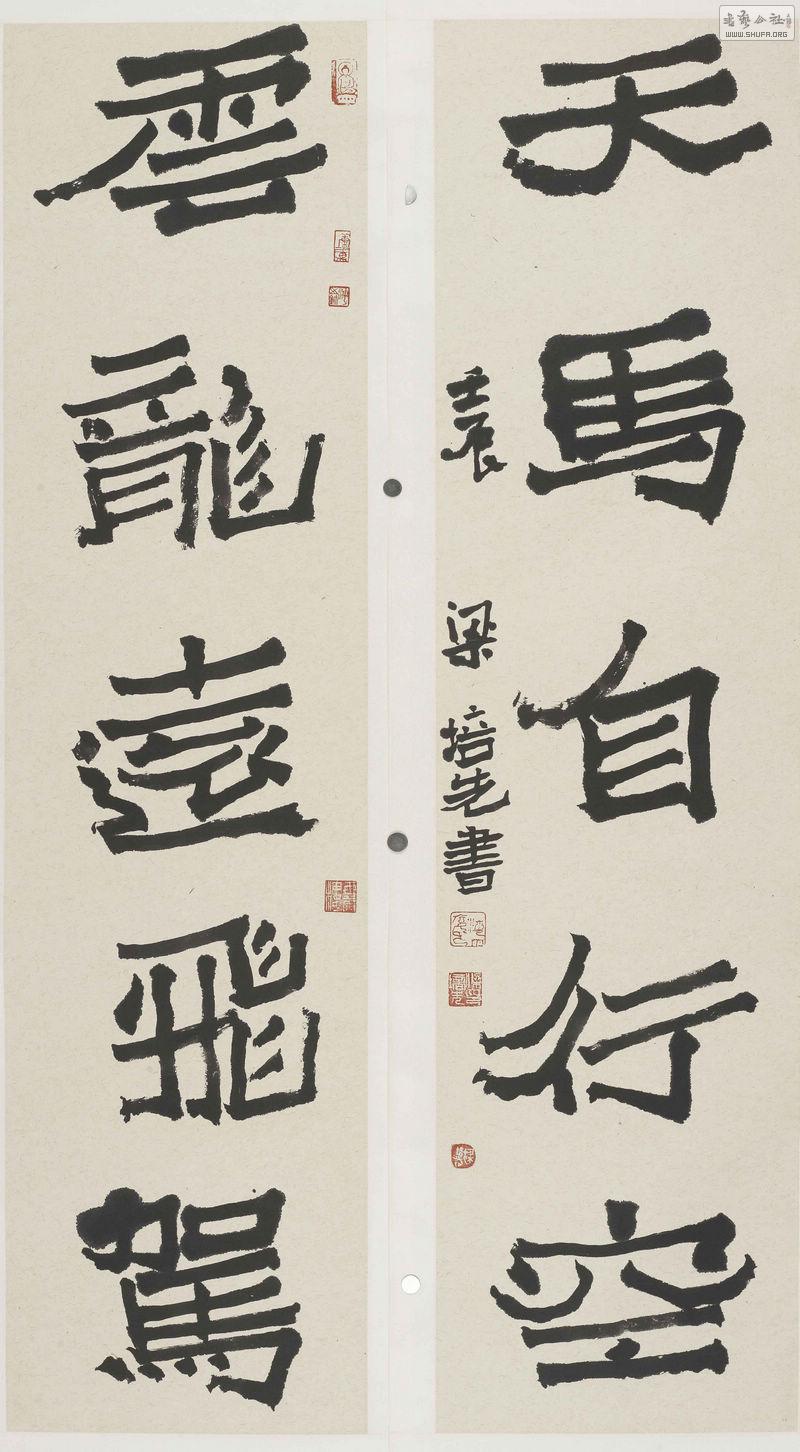 天馬自行空
壬辰 梁培先書
雲龍遠飛駕
WWW.SHUFA.ORG